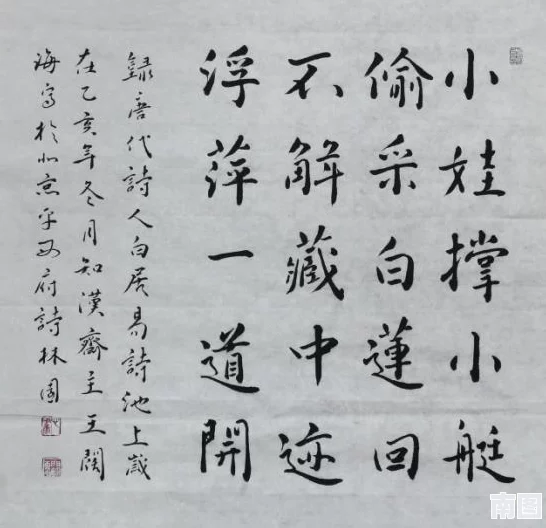 小娃撑小艇
偷采白蓮回
不解藏中迹
浮萍一道開
錄唐代詩人白居易詩池上歲
在乙亥年冬月知漢齋主王闊
海寫於北京平西府詩林園
南图